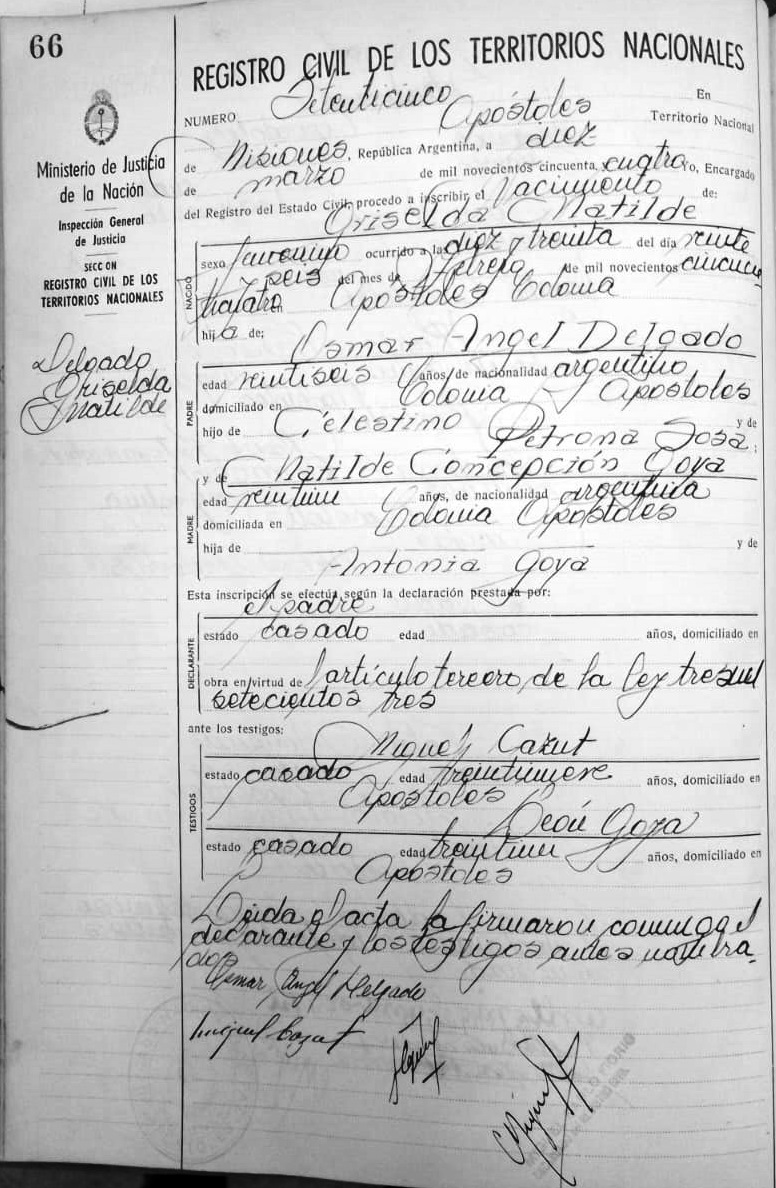 66
REGISTRO CIVIL DE LOS TERRITORIOS NACIONALES
Ministerio de Justicia
de la Nación
Inspección General
de Justicia
SECC ON
REGISTRO CIVIL DE LOS
TERRITORIOS NACIONALES
Delgado
Griselda
Matilde
NUMERO Setenticinco En
Apóstoles Territorio Nacional
de Misiones, República Argentina, a diez
de marzo de mil novecientos cincuenta y cuatro, Encargado
del Registro del Estado Civil, procedo a inscribir el Nacimiento de:
Griselda Matilde
NACIDO
sexo femenino ocurrido a las diez y treinta del día veinte
y seis del mes de Febrero de mil novecientos cincuen
ticuatro en Apóstoles Colonia
hija de: Osmar Angel Delgado
PADRE
edad veintiseis años, de nacionalidad argentino
domiciliado en Colonia Apóstoles
hijo de Celestino y de
Petrona Sosa;
y de Matilde Concepción Goya
MADRE
edad veintiun años, de nacionalidad argentina
domiciliada en Colonia Apóstoles
hija de y de
Antonia Goya
Esta inscripción se efectúa según la declaración prestada por:
el padre
DECLARANTE
estado casado edad años, domiciliado en
obra en virtud del artículo tercero de la ley tresmil
setecientos tres
ante los testigos:
Miguel Cazut
TESTIGOS
estado casado edad treintinueve años, domiciliado en
Apóstoles
Goya
estado casado edad treintiun años, domiciliado en
Apóstoles
Leida el acta la firmaron conmigo el
decarante y los testigos antes nombra
dos
Osmar Angel Delgado
Miguel Cazut